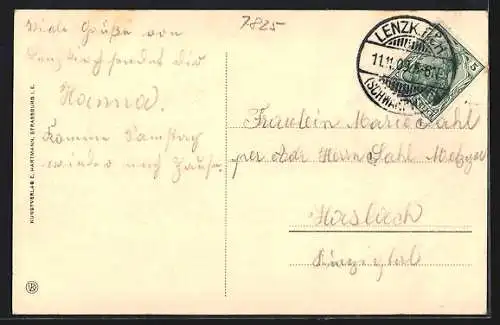 7825
Viele Grüße von
Lenzkirch sendet dir
Hanna.
Komme Samstag
wieder nach Hause.
KUNSTVERLAG E. HARTMANN, STRASSBURG I. E.
LENZKIRCH
11.11.09
(SCHWARZW
5
Fräulein Marie Sahl
per Adr Herrn Sahl Metzger
Haslach
Kinzigtal